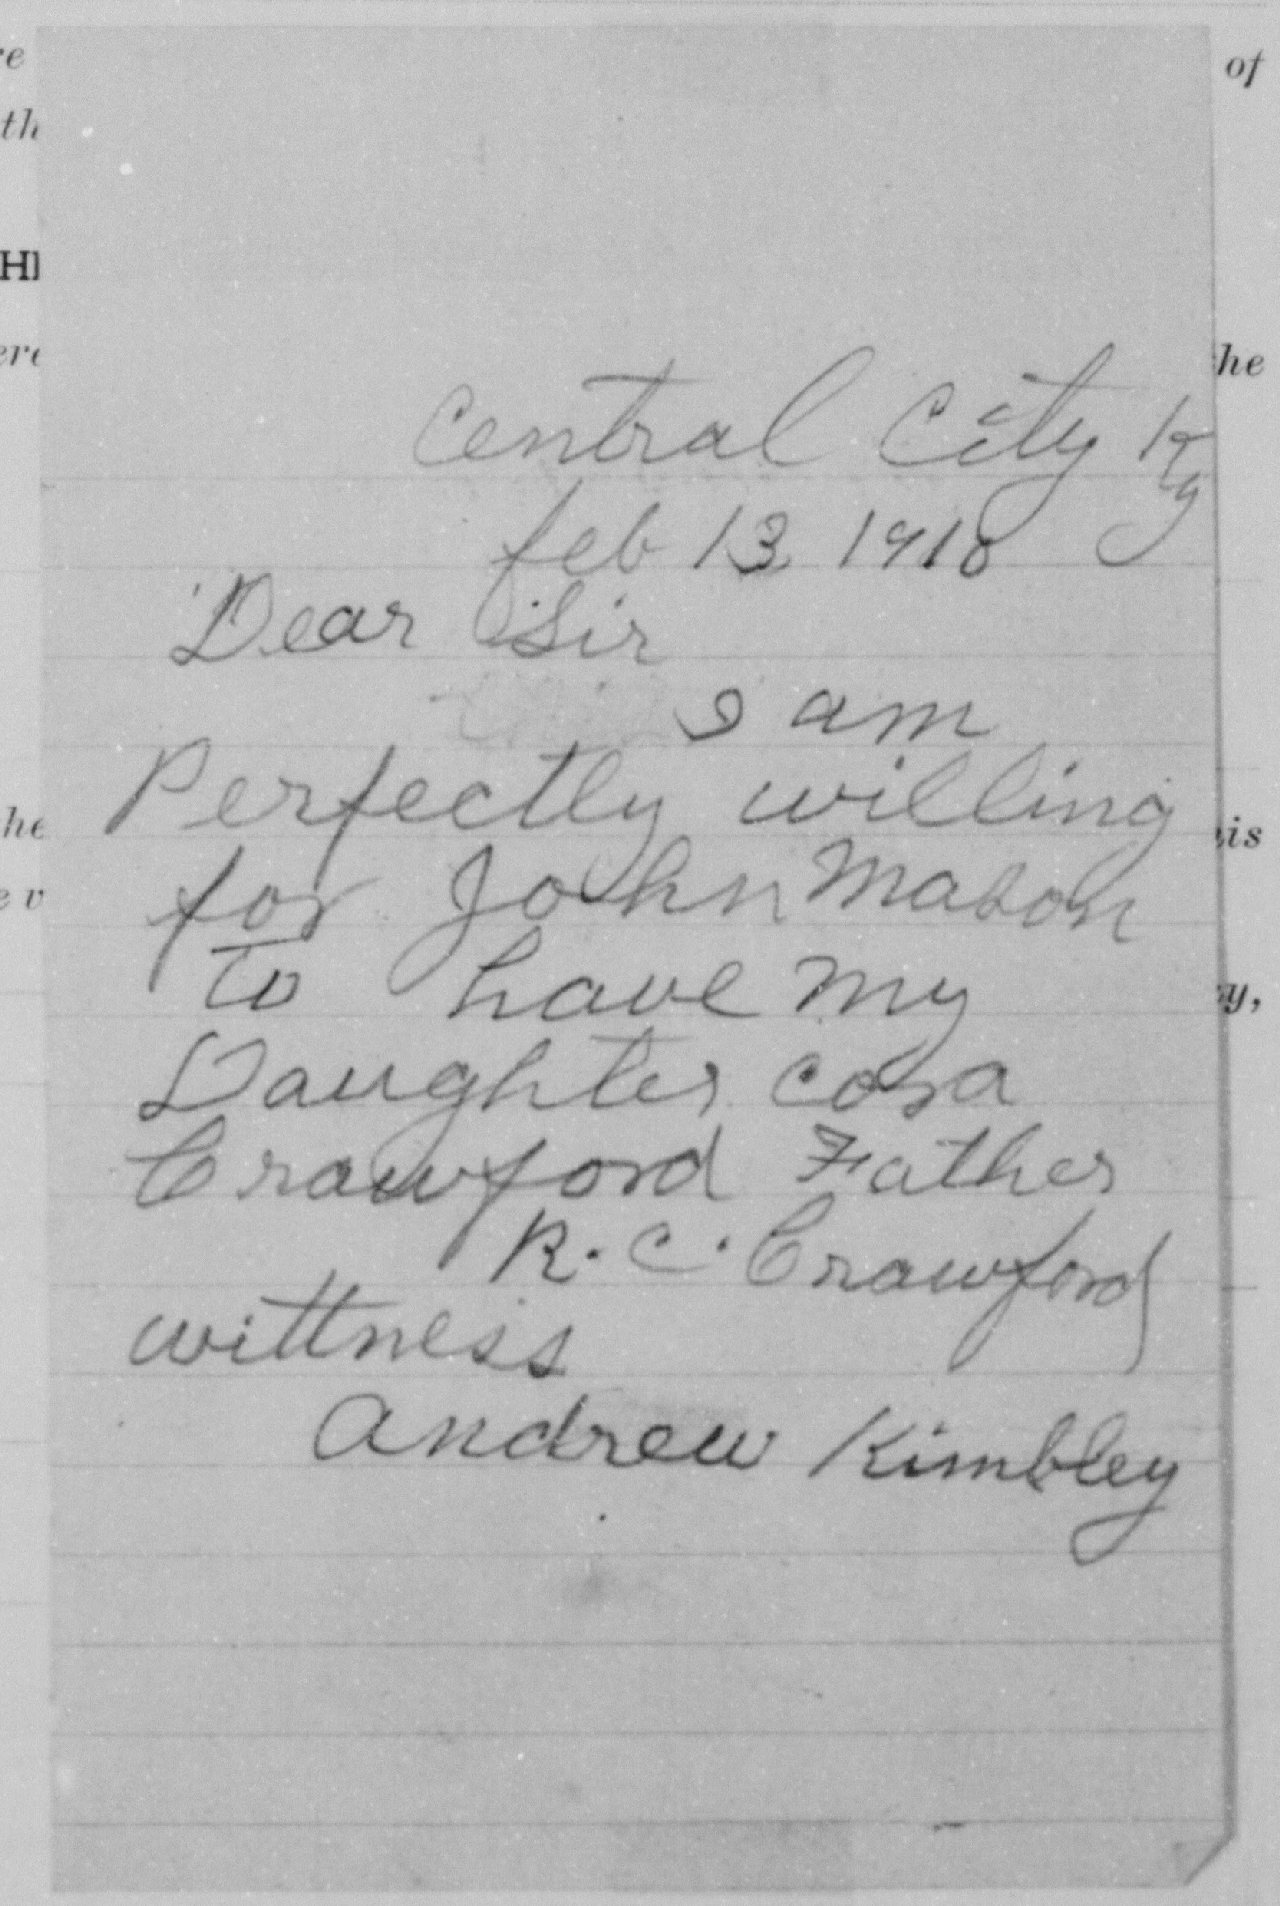 re
of
th
HI
ere
the
Central City Ky
feb 13 1918
Dear Sir
I am
Perfectly willing
he
is
for John Mason
e v
to have my
y,
Daughter cora
Crawford Father
R. C. Crawford
wittness
Andrew Kimbley